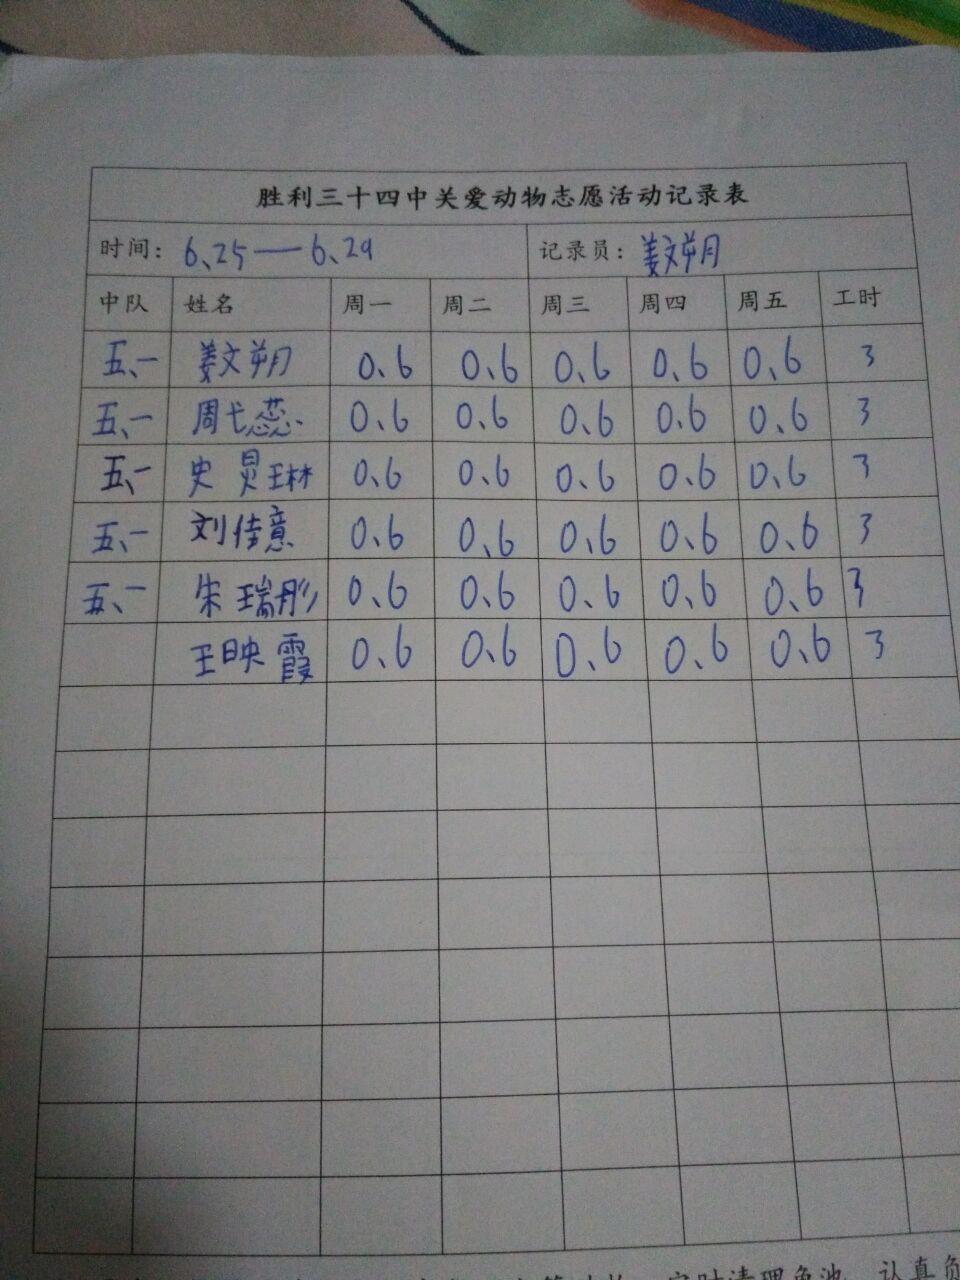 胜利三十四中关爱动物志愿活动记录表
时间：6.25—6.29 记录员：姜文朔
中队 姓名 周一 周二 周三 周四 周五 工时
五、一 姜文朔 0.6 0.6 0.6 0.6 0.6 3
五、一 周弋蕊 0.6 0.6 0.6 0.6 0.6 3
五、一 史炅琳 0.6 0.6 0.6 0.6 0.6 3
五、一 刘佳意 0.6 0.6 0.6 0.6 0.6 3
五、一 朱瑞彤 0.6 0.6 0.6 0.6 0.6 3
王映霞 0.6 0.6 0.6 0.6 0.6 3
定时清理鱼池，认真负